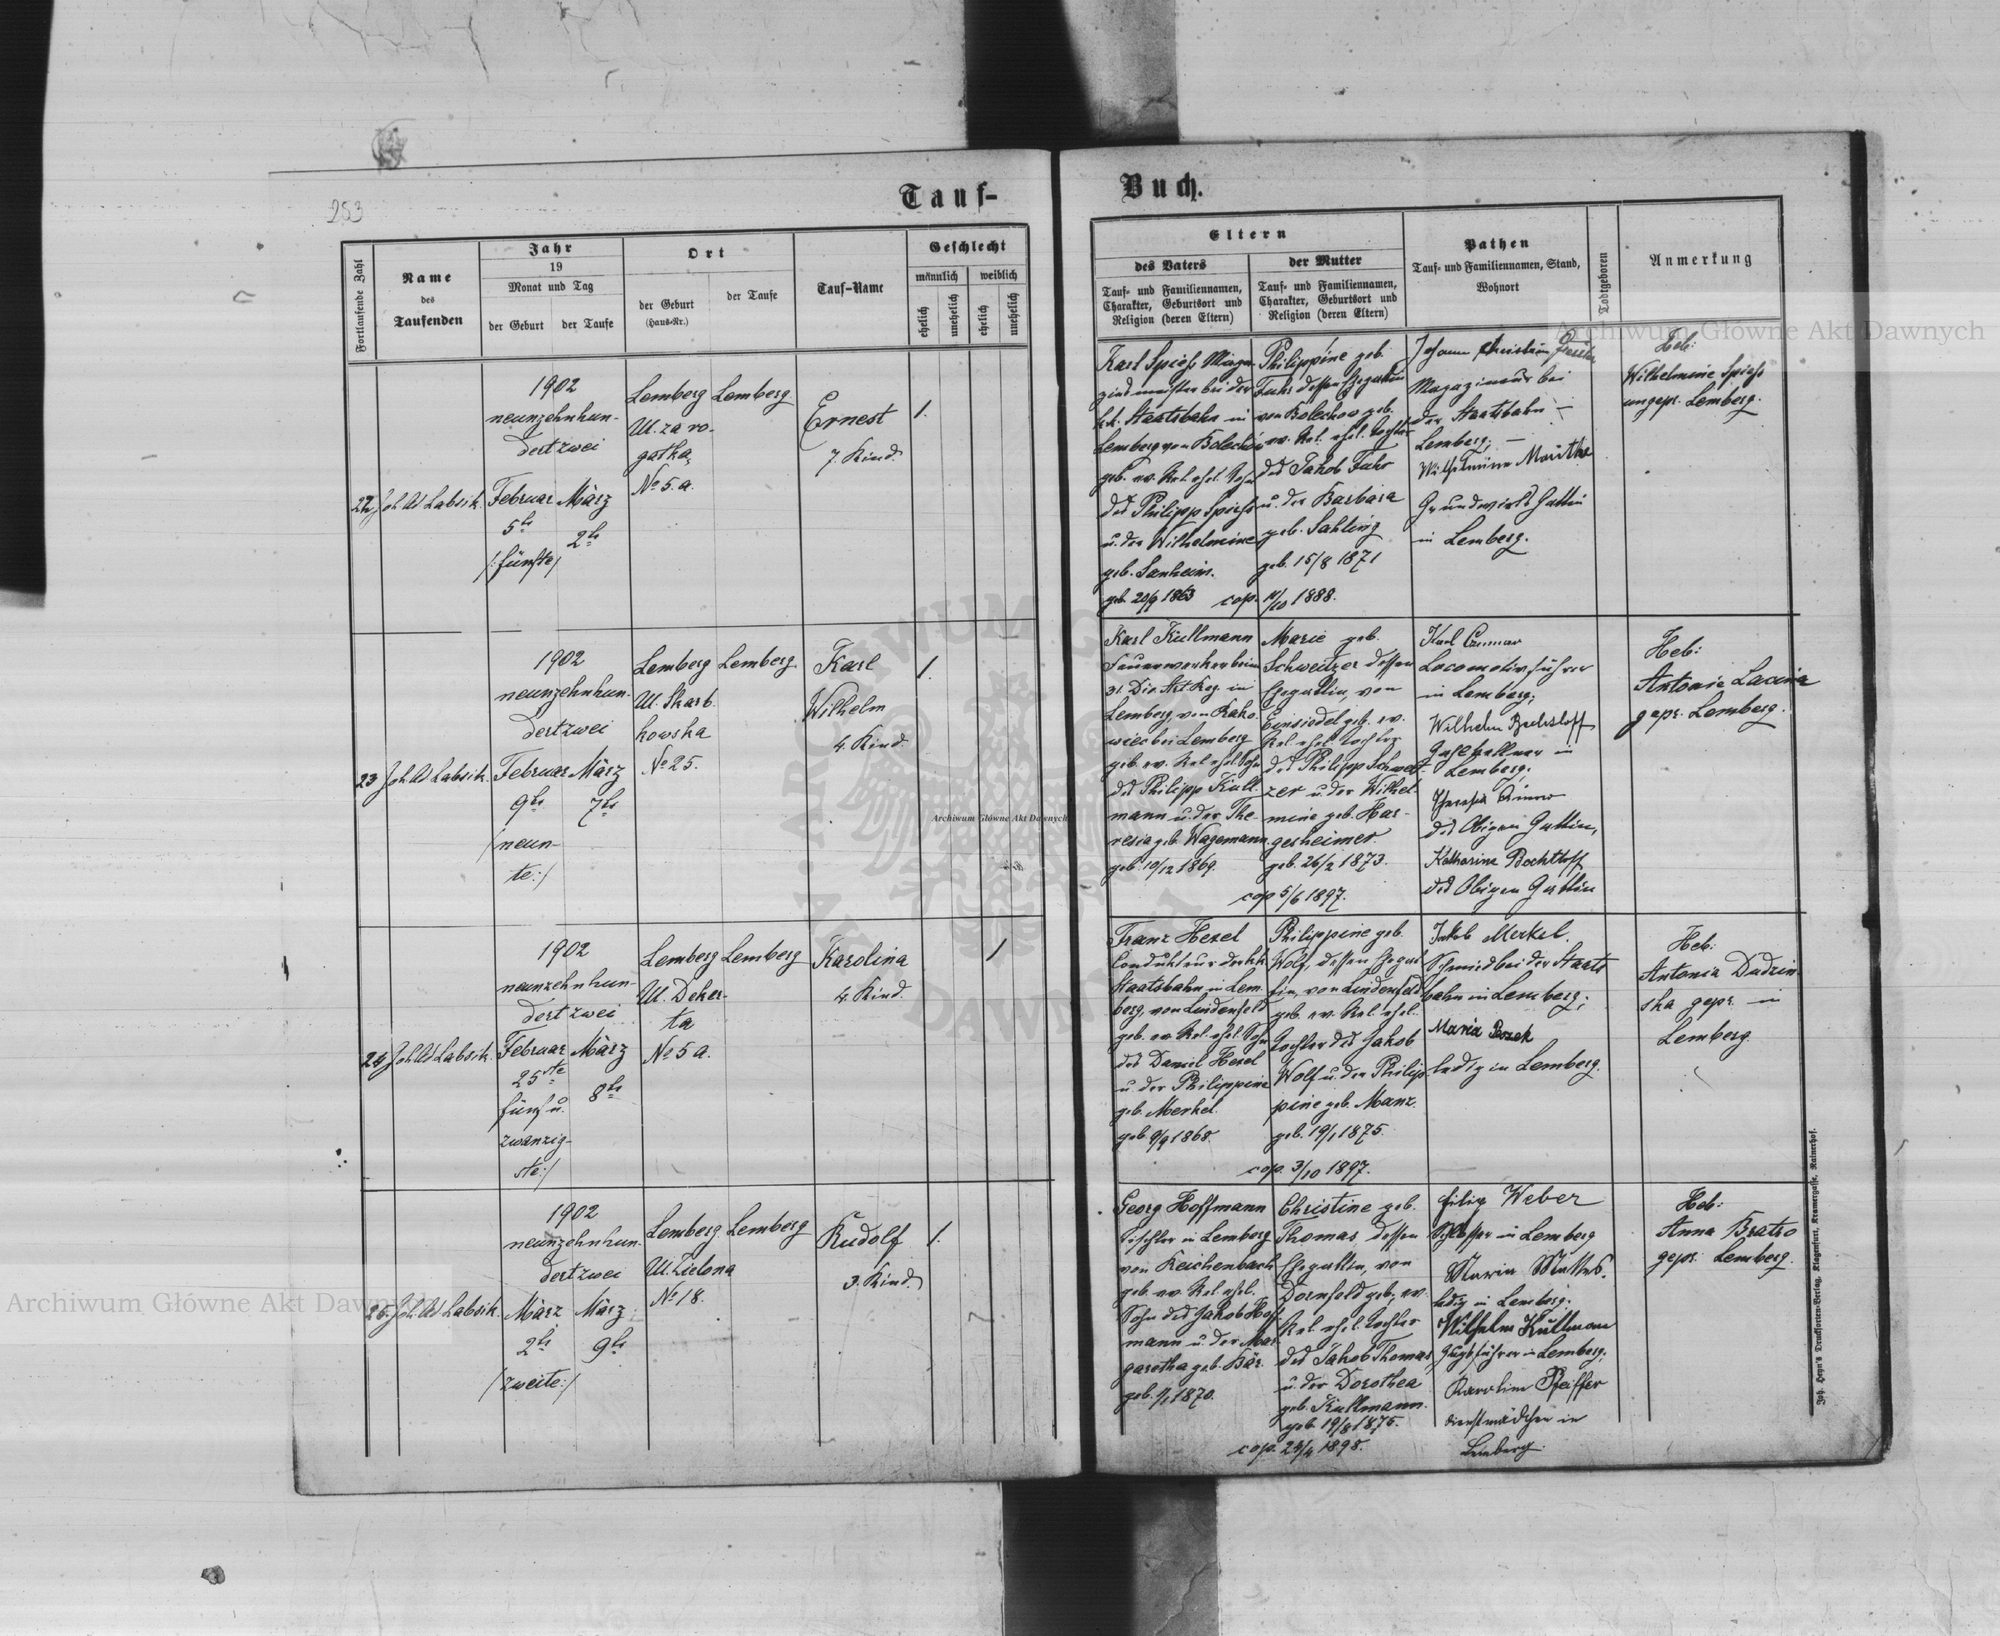 253
Tauf-
Buch.
Fortlaufende Zahl
Name
des
Taufenden
Jahr
19
Monat und Tag
der Geburt
der Taufe
Ort
der Geburt
(Haus-Nr.)
der Taufe
Tauf-Name
Geschlecht
männlich
weiblich
ehelich
unehelich
ehelich
unehelich
Eltern
des Vaters
Tauf- und Familiennamen,
Charakter, Geburtsort und
Religion (deren Eltern)
der Mutter
Tauf- und Familiennamen,
Charakter, Geburtsort und
Religion (deren Eltern)
Pathen
Tauf- und Familiennamen, Stand,
Wohnort
Todtgeboren
Anmerkung
22
Labsik.
1902
neunzehnhun-
dertzwei
Februar
5te
/:fünfte/
März
2te
Lemberg
Ul. za ro-
gatka
No 5.a.
Lemberg
Ernest
7. Kind.
1.
Karl Spiess
bei der
k.k. Staatsbahn in
Lemberg von Bolechów
geb. ev. Rel. ehel. Sohn
des Philipp Spiess
u. der Wilhelmine
geb. Sanheim.
geb. 20/9 1863
Philippine geb.
Fuhr dessen Ehegattin
von Bolechow geb.
ev. Rel. ehel. Tochter
des Jakob Fuhr
u. der Barbara
geb. Sahling
geb. 15/8 1871
cop. 14/10 1888.
Johann Christian
Magazineur bei
der Staatsbahn –
Lemberg; –
Wilhelmine
Grundwirts Gattin
in Lemberg.
Heb:
Wilhelmine Spiess
ungepr. Lemberg.
23
Labsik.
1902
neunzehnhun-
dertzwei
Februar
9te
/neun-
te:/
März
7te
Lemberg
Ul. Skarb
kowska
No 25.
Lemberg.
Karl
Wilhelm
4. Kind
1.
Karl Kullmann
Feuerwerker beim
31 Div. Art. Reg. in
Lemberg, von Rako-
wiec bei Lemberg
geb. ev. Rel. ehel. Sohn
des Philipp Kull-
mann u. der The-
resia geb. Wagemann
geb. 10/12 1869.
Marie geb.
Schweitzer dessen
Ehegattin, von
Einsiedel geb. ev.
Rel. ehel. Tochter
des Philipp Schweit-
zer u. der Wilhel-
mine geb. Har-
gesheimer.
geb. 26/2 1873.
cop 5/6 1897.
Karl
Locomotivführer
in Lemberg;
Wilhelm Bechtloff
in
Lemberg;
des Obigen Gattin,
Katharina Bechtloff
des Obigen Gattin
Heb:
Antonie Lacina
gepr. Lemberg.
24
Labsik.
1902
neunzehnhun-
dertzwei
Februar
25ste
fünf u.
zwanzig-
ste:/
März
8te
Lemberg
Ul. Deker-
ta
No 5a.
Lemberg
Karolina
4. Kind.
1
Franz Hexel
Condukteur der kk
Staatsbahn in Lem-
berg, von Lindenfeld
geb. ev. Rel. ehel. Sohn
des Daniel Hexel
u der Philippine
geb. Merkel.
geb. 9/9 1868
Philippine geb.
Wolf, dessen Ehegat-
tin, von Lindenfeld
geb. ev. Rel. ehel.
Tochter des Jakob
Wolf u. der Philip-
pine geb. Manz.
geb. 19/1 1875.
cop. 3/10 1897.
Jakob Merkel.
Schmied bei der Staats
bahn in Lemberg;
Maria
ledig in Lemberg.
Heb:
Antonia Dudzin
ska gepr. in
Lemberg.
25.
Labsik.
1902
neunzehnhun-
dertzwei
März
2te
/zweite:/
März
9te
Lemberg
Ul. Zielona
No 18.
Lemberg
Rudolf
3. Kind
1.
Georg Hoffmann
Tischler in Lemberg
von Reichenbach
geb. ev. Rel. ehel.
Sohn des Jakob Hoff-
mann u. der Mar-
garetha geb. Bär.
geb. 1/1 1870.
Christine geb.
Thomas dessen
Ehegattin, von
Dornfeld geb. ev.
Rel. ehel. Tochter
des Jakob Thomas
u. der Dorothea
geb. Kullmann.
geb. 19/8 1875.
cop. 24/4 1898.
Filip Weber
Schlosser in Lemberg
Maria
ledig in Lemberg;
Wilhelm Kullmann
Zugsführer in Lemberg;
Karolina Pfeiffer
Dienstmädchen in
Lemberg.
Heb:
Anna Bratro
gepr. Lemberg.
Joh. Heyn's Drucksorten-Verlag, Klagenfurt, Kramergasse, Rainerhof.
Archiwum Główne Akt Dawnych
Archiwum Główne Akt Dawnych
Archiwum Główne Akt Dawnych